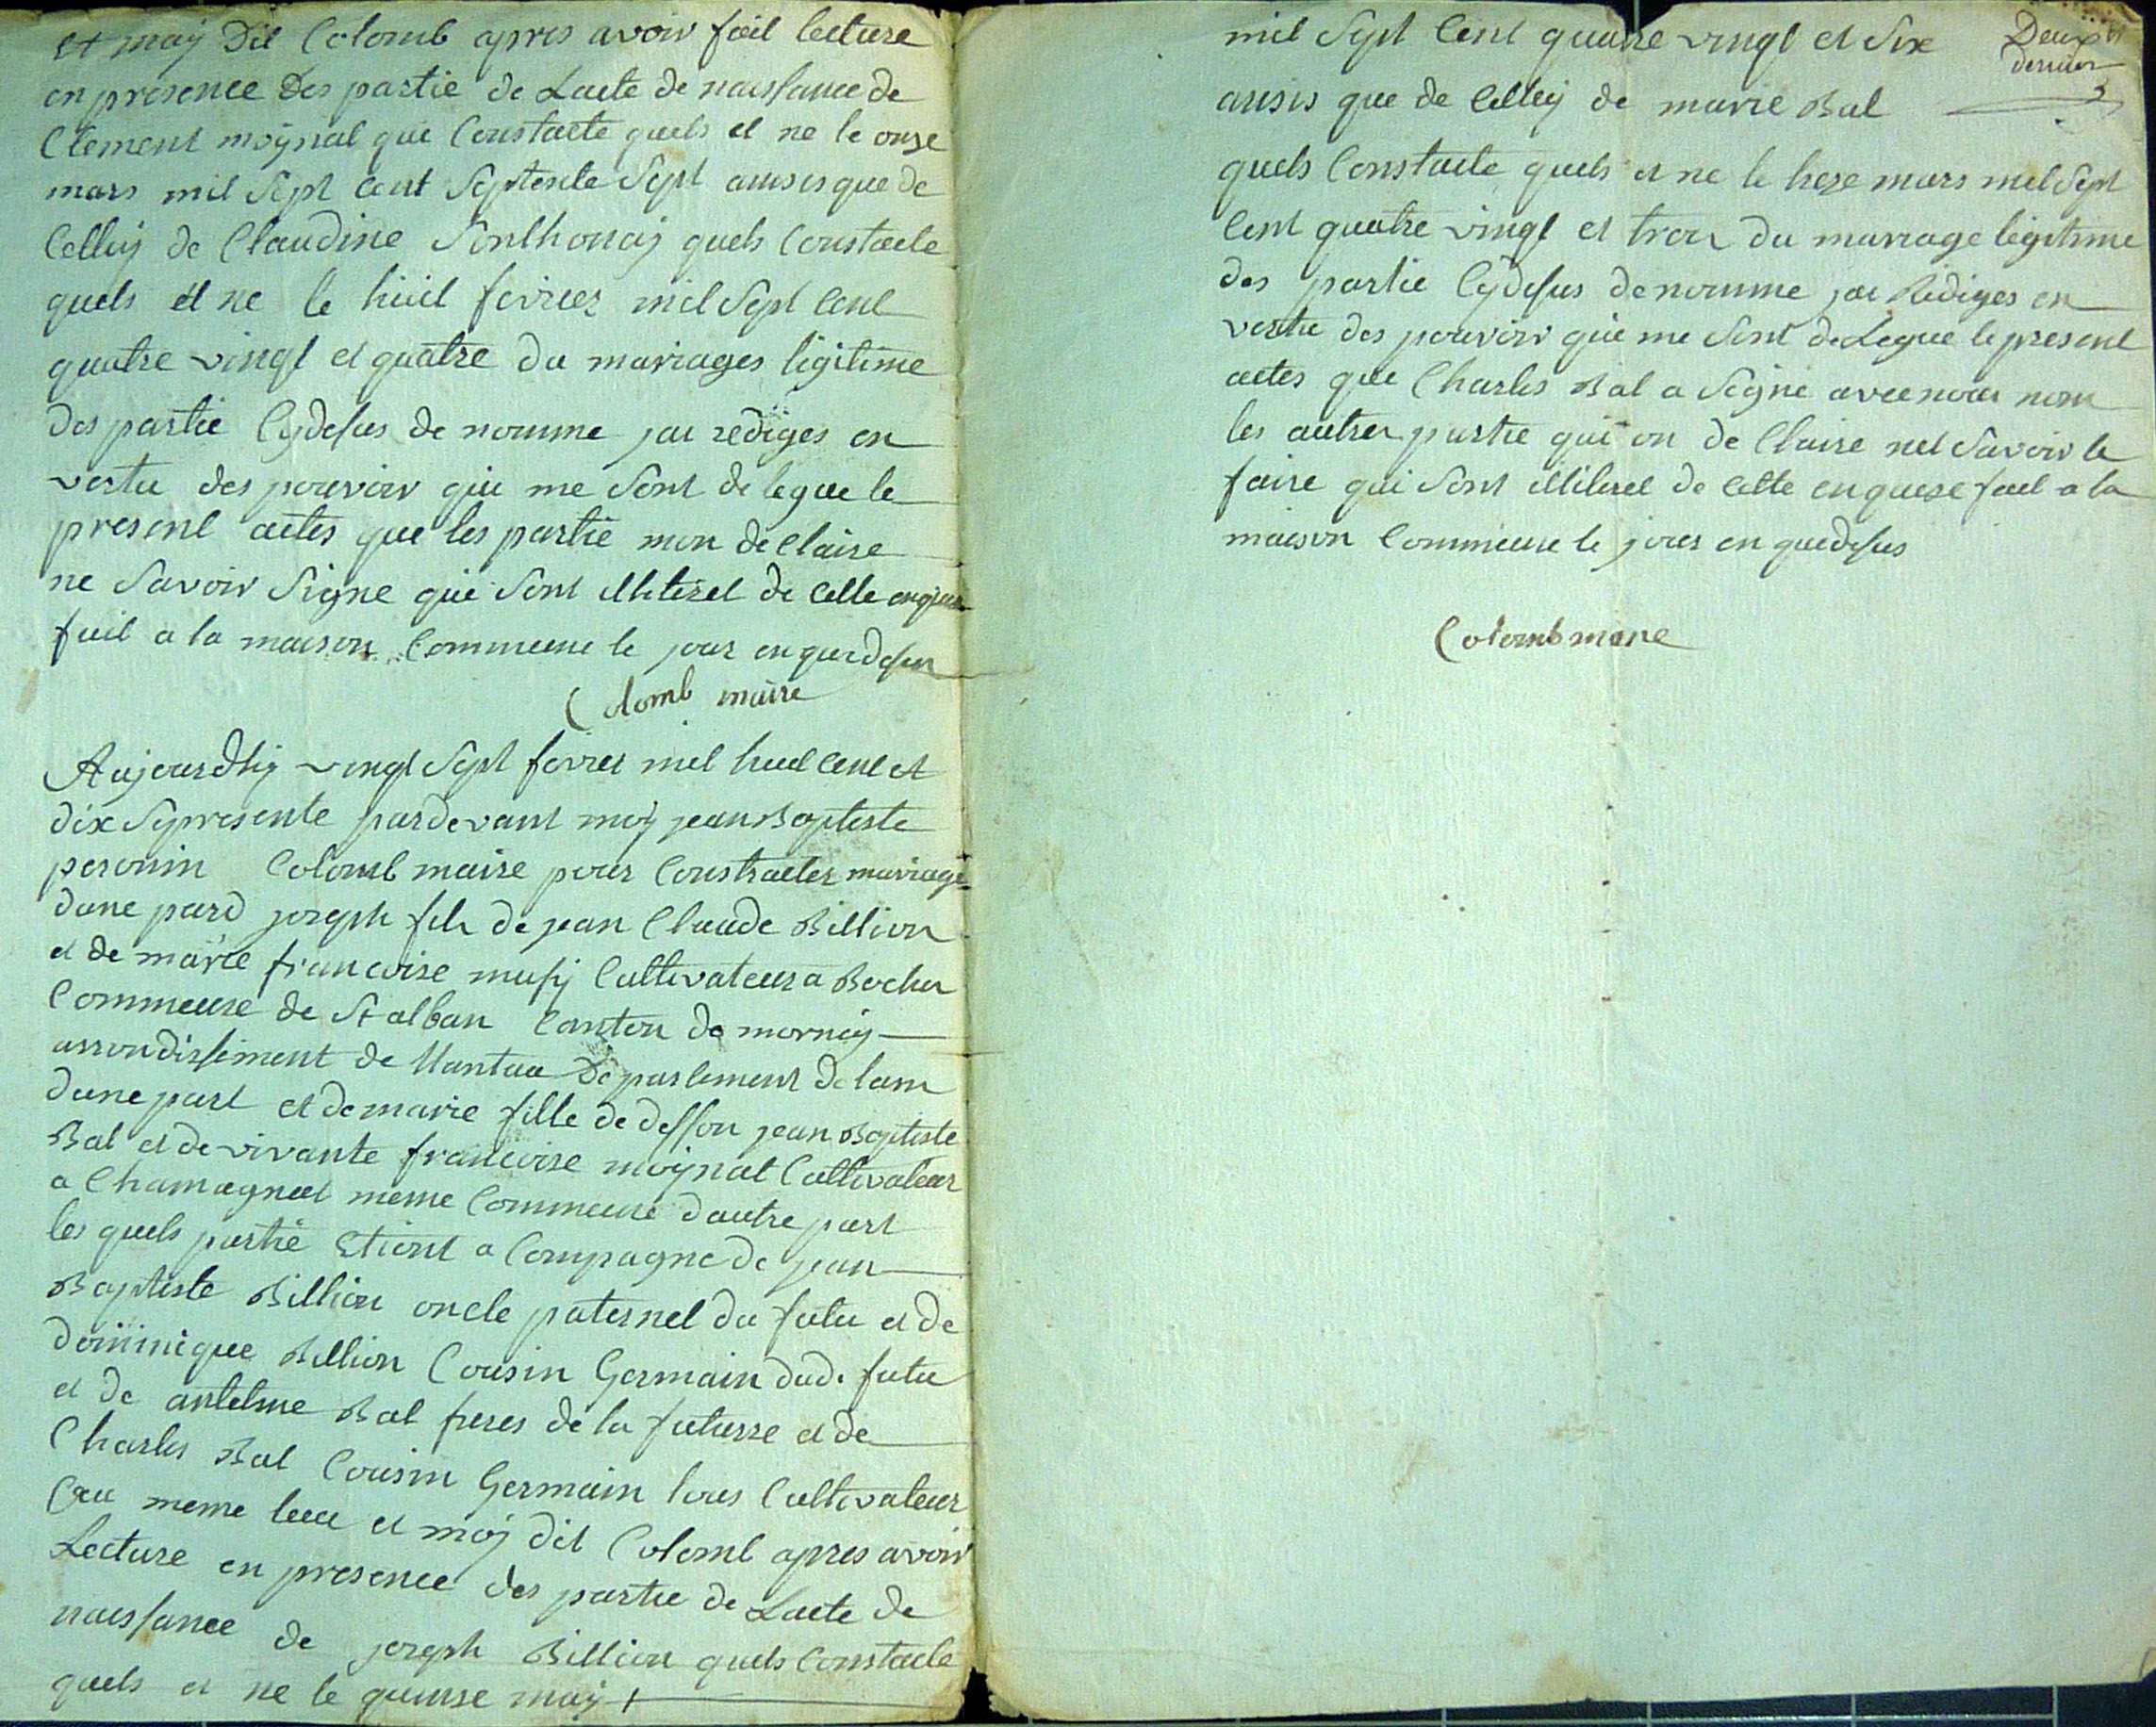 et moy dit Colomb apres avoir fait lecture
en presence des partie de Lacte de naissance de
Clement moynal que Constacte quels et ne le onze
mars mil Sept Cent Septente Sept ainsis que de
Celluy de Claudine Ponthonay quels Constacte
quels et ne le huit fevrier mil Sept Cent
quatre vingt et quatre du mariages legitime
des partie Cydesus de nomme jai rediges en
vertu des pouvoir qui me Sont delegue le
present actes que les partie mon de Claire
ne Savoir Signe qui Sont illiteret de Celle enquise
fait a la maison Commune le jour en quedesus
Colomb maire
Aujourdhy vingt Sept fevrier mil huit Cent et
dix Sepresente pardevant moy jean Baptiste
peronin Colomb maire pour Constracter mariage
dune pard joseph fils de jean Claude Billion
et de marie francoise musy Cultivateur a Bocher
Commeune de St alban Canton de mornay
arrondissement de Nantua departement de lain
dune part et de marie fille de deffon jean Baptiste
Bal et de vivante francoise moynat Cultivateur
a Chamagnat meme Commeune dautre part
les quels partie Etiont a Compagne de jean
Baptiste Billion oncle paternel du futu et de
dominique Billion Cousin Germain dud. futu
et de antelme Bal freres de la futurre et de
Charles Bal Cousin Germain tous Cultivateur
au meme lieu et moy dit Colomb apres avoir
Lecture en presence des partie de Lacte de
naissance de joseph Billion quels Constacte
quels et ne le quinse may +
mil Sept Cent quatre vingt et Six
Deux
dernier
ansis que de Celluy de marie Bal
quels Constacte quels et ne le treze mars mil Sept
Cent quatre vingt et troix du mariage legitime
des partie Cydesus denomme jai Rediges en
vertu des pouvoir qui me Sont deLegue le present
actes que Charles Bal a Signe avec nous non
les autres partie qui on de Claire nel Savoir le
faire qui Sont illiteret de Celle enquese fait a la
maison Commeune le jour en quedesus
Colomb maire